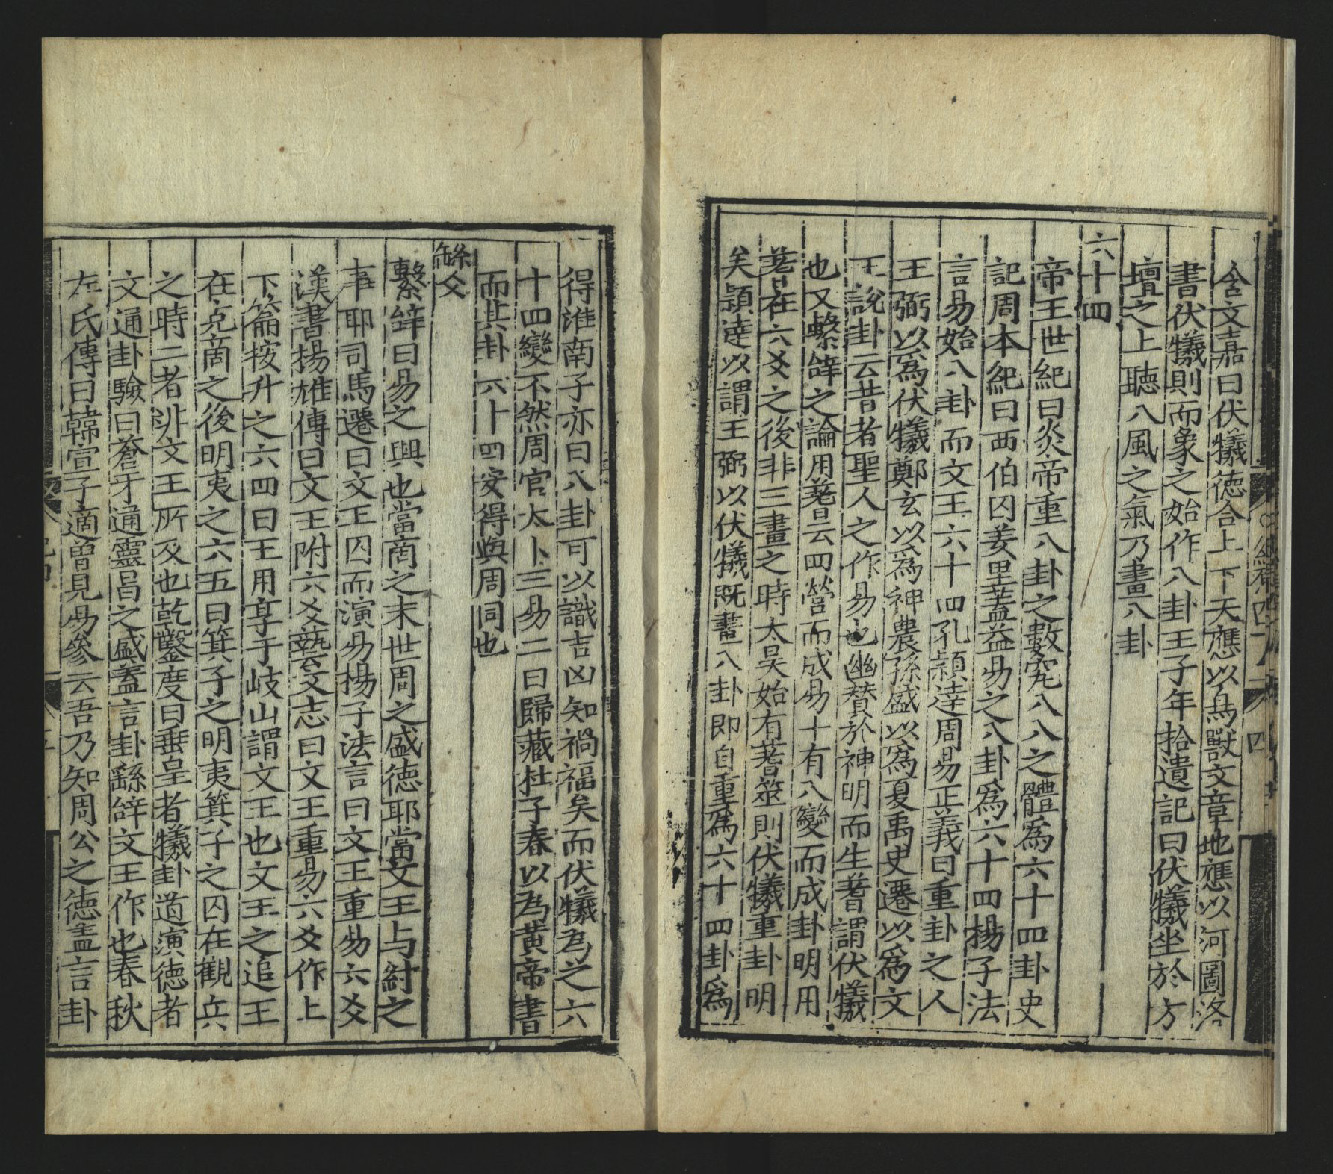 含文嘉曰伏犧德合上下天應以鳥獸文章地應以河圖洛
書伏犧則而象之始作八卦王子年拾遺記曰伏犧坐於方
壇之上聽八風之氣乃畫八卦
六十四
帝王世紀曰炎帝重八卦之數究八八之體為六十四卦史
記周本紀曰西伯囚羑里蓋益易之八卦為六十四揚子法
言易始八卦而文王六十四孔頴達周易正義曰重卦之人
王弼以為伏犧鄭玄以為神農孫盛以為夏禹史遷以為文
王說卦云昔者聖人之作易也幽贊於神明而生蓍謂伏犧
也又繫辝之論用蓍云四營而成易十有八變而成卦明用
蓍在六爻之後非三畫之時大昊始有蓍筮則伏犧重卦明
矣頴達以謂王弼以伏犧既畫八卦即自重為六十四卦為
得淮南子亦曰八卦可以識吉凶知禍福矣而伏犧為之六
十四變不然周官大卜三易二曰歸藏杜子春以為黃帝書
而其卦六十四安得與周同也
繇爻
繫辝曰易之興也當商之末世周之盛德耶當文王与紂之
事耶司馬遷曰文王囚而演易揚子法言曰文王重易六爻
漢書揚雄傳曰文王附六爻藝文志曰文王重易六爻作上
下篇按升之六四曰王用亨于岐山謂文王也文王之追王
在克商之後明夷之六五曰箕子之明夷箕子之囚在觀兵
之時二者非文王所及也乾鑿度曰垂皇者犧卦道演德者
文通卦驗曰蒼牙通靈昌之盛蓋言卦繇辝文王作也春秋
左氏傳曰韓宣子適魯見易象云吾乃知周公之德盖言卦